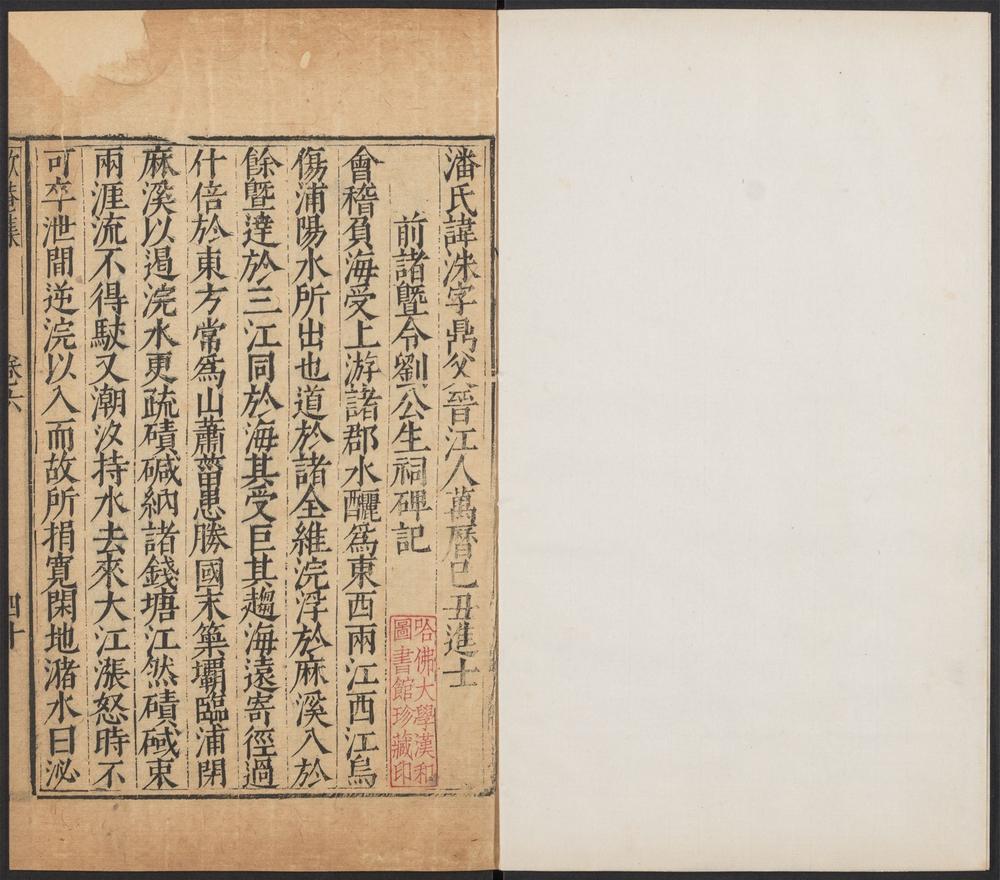 潘氏諱洙字鼎父晉江人萬曆己丑進士
前諸暨令劉公生祠碑記
會稽負海受上游諸郡水釃爲東西兩江西江烏
傷浦陽水所出也道於諸全維浣浮於麻溪入於
餘暨達於三江同於海其受巨其趨海遠寄徑過
什倍於東方常爲山蕭菑患勝國末築壩臨浦閉
麻溪以遏浣水更疏磧碱納諸錢塘江然磧堿東
兩涯流不得駛又潮汐持水去來大江漲怒時不
可卒泄間逆浣以入而故所捐寬閑地瀦水曰泌
歇菴集
卷六
四十
哈佛大學漢和
圖書館珍藏印